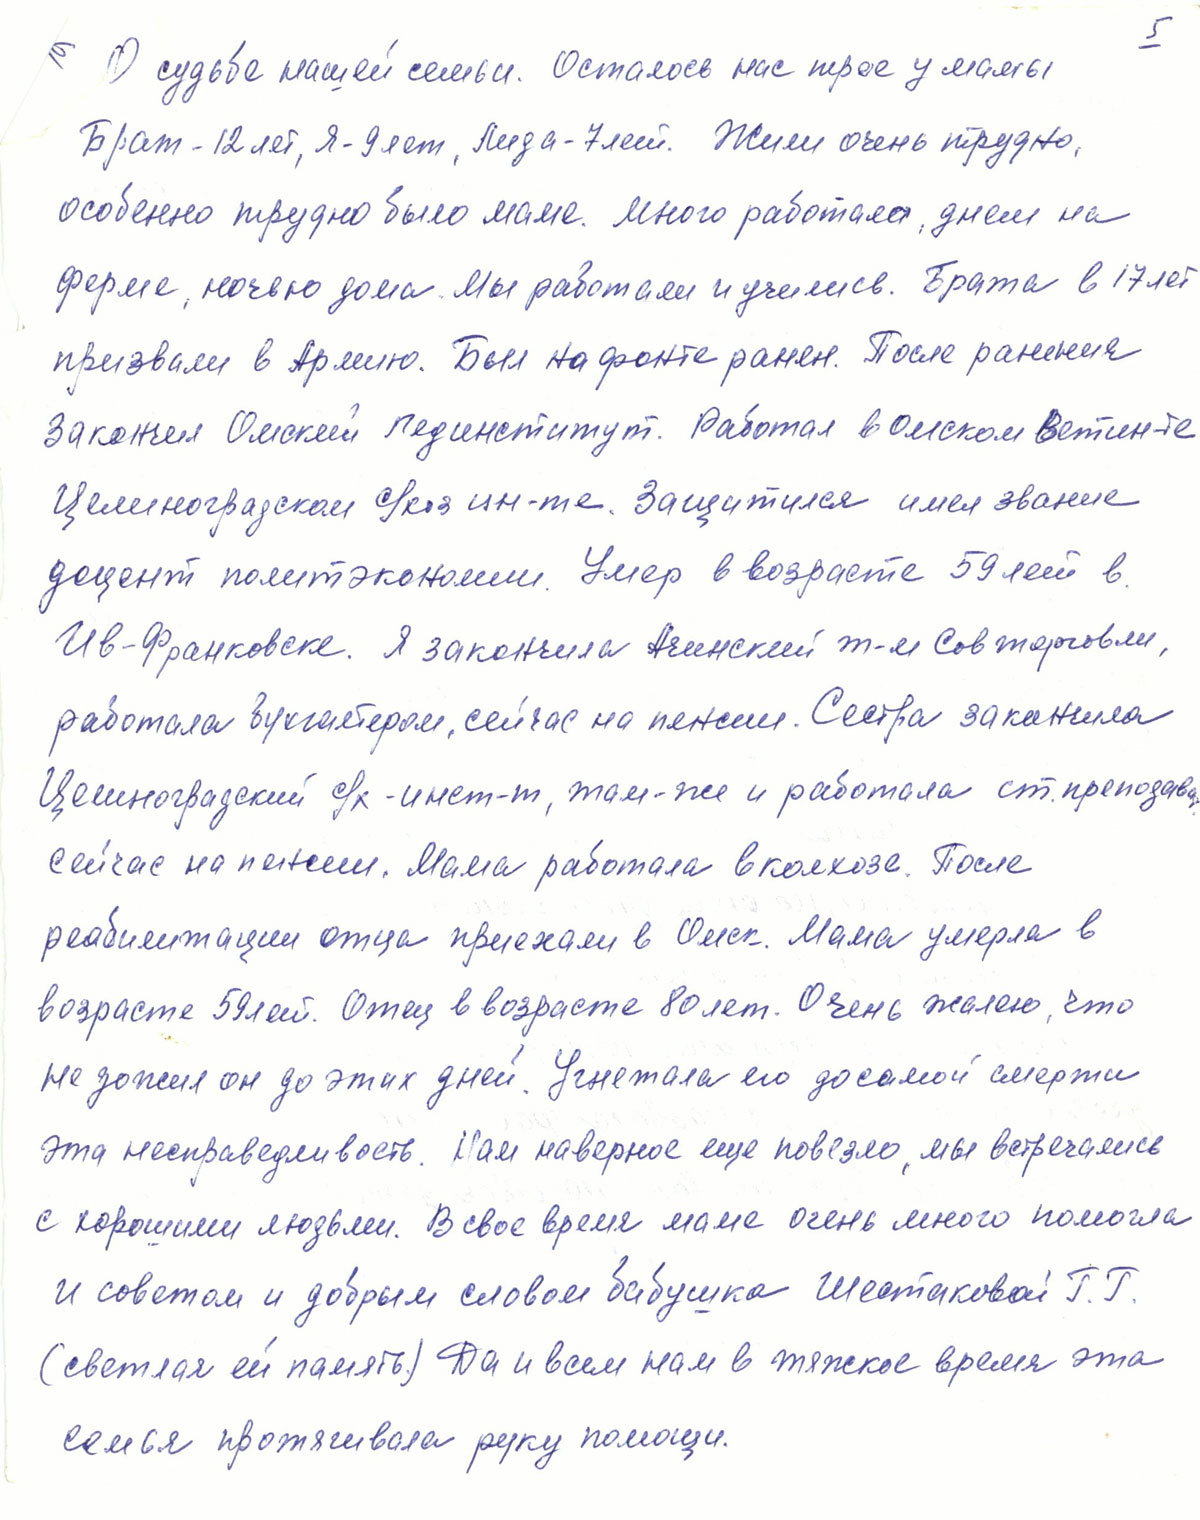 5
О судьбе нашей семьи. Осталось нас трое у мамы
Брат - 12 лет, Я - 9 лет, Лида - 7 лет. Жили очень трудно,
особенно трудно было маме. Много работала, днем на
ферме, ночью дома. Мы работали и учились. Брата в 17 лет
призвали в Армию. Был на фронте ранен. После ранения
закончил Омский Пединститут. Работал в Омском Ветин-те
Целиноградском с/хоз ин-те. Защитился имел звание
доцент политэкономии. Умер в возрасте 59 лет в
Ив-Франковске. Я закончила Ачинский т-м Совторговли,
работала бухгалтером, сейчас на пенсии. Сестра закончила
Целиноградский с/х - инст-т, там-же и работала ст. преподават.
сейчас на пенсии. Мама работала в колхозе. После
реабилитации отца приехали в Омск. Мама умерла в
возрасте 59 лет. Отец в возрасте 80 лет. Очень жалею, что
не дожил он до этих дней. Угнетала его до самой смерти
эта несправедливость. Нам наверное еще повезло, мы встречались
с хорошими людьми. В свое время маме очень много помогла
и советом и добрым словом бабушка Шестаковой Г.Г.
(светлая ей память) Да и всем нам в тяжкое время эта
семья протягивала руку помощи.